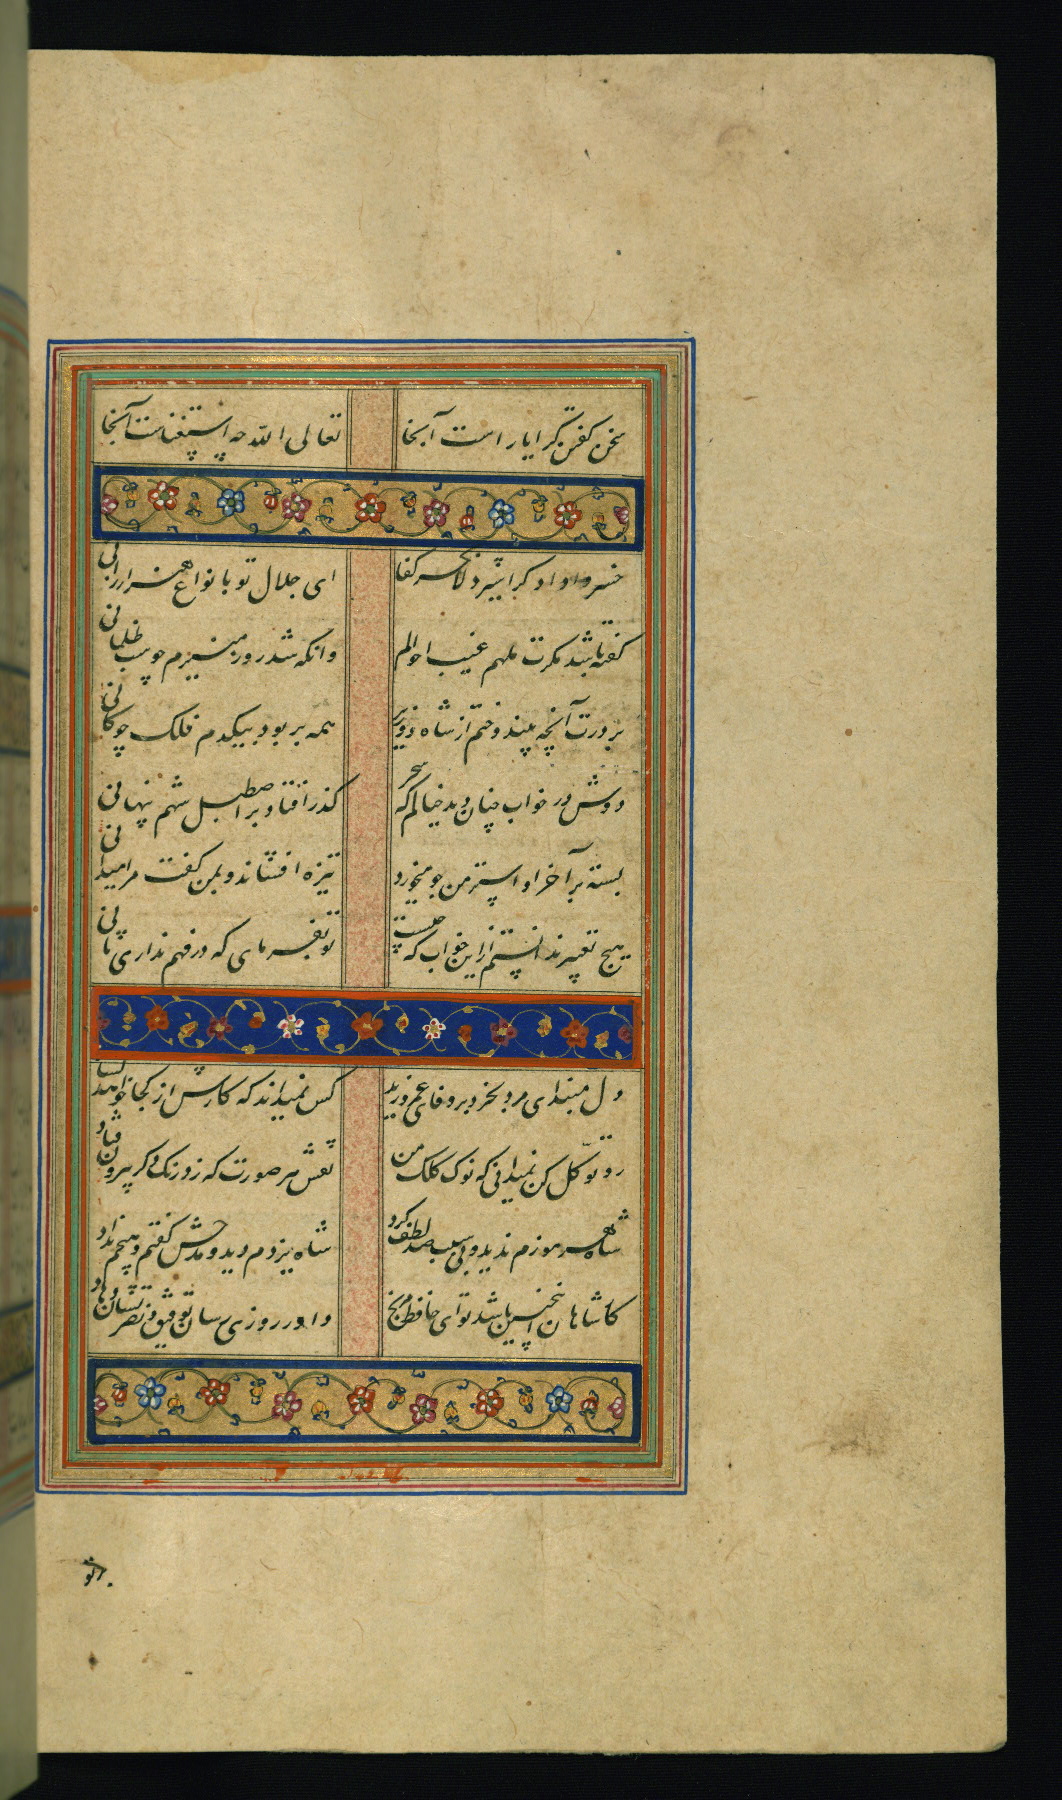 سخن گفتن کرا یاراست آنجا تعالی الله چه استغناست آنجا
خسروا دادگرا شیردلا بحر کفا ای جلال تو بانواع هنر ارزانی
گفته باشد مکرت ملهم غیب احوالم وانکه شد روز منیرم چو شب ظلمانی
بدورت آنچه بیندوختم از شاه و وزیر همه بربود بیکدم فلک چوکانی
دوش در خواب چنان دید خیالم که سحر گذر افتاد بر اصطبل شهم پنهانی
بسته بر آخر او استر من جو میخورد تیزه افشاند و بمن گفت مرا میدانی
هیچ تعبیر ندانستم ازین خواب که چیست تو بفرمای که در فهم نداری ثانی
دل مبند ای مرد بخرد بر وفای عمرو زید کس نمیداند که کارش از کجا خواهد گشاد
رو توکل کن نمیدانی که نوک کلک من نقش هر صورت که زد رنک دگر بیرون فتاد
شاه هرموزم ندید و بی سبب صد لطف کرد شاه یزدم دید و مدحش گفتم و هیچم نداد
کار شاهان اینچنین باشد تو ای حافظ مرنج داور روزی رسان توفیق و نصرتشان دهاد